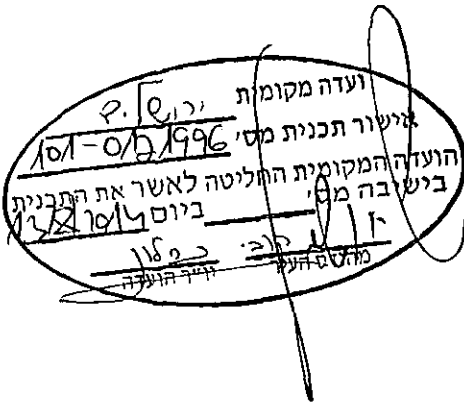 ועדה מקומית ירושלים
אישור תכנית מס' 101-0121996
הועדה המקומית החליטה לאשר את התכנית
בישיבה מס' ביום
מהנדס העיר יו"ר הועדה